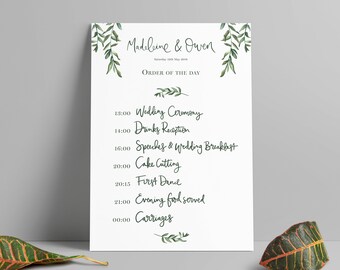 Madeleine & Owen
ORDER OF THE DAY
13:00 Wedding Ceremony
14:00 Drinks Reception
16:00 Speeches & Wedding Breakfast
20:00 Cake Cutting
20:15 First Dance
21:00 Evening food served
00:00 Carriages